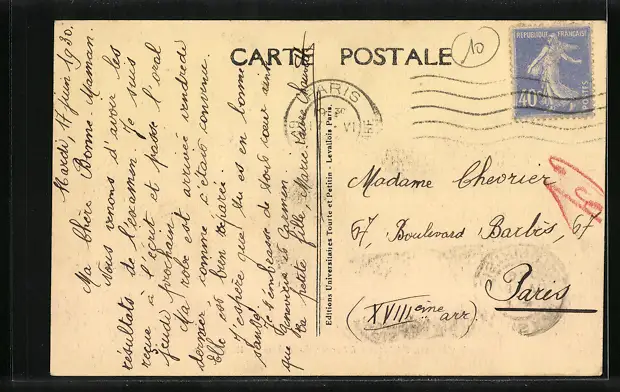 CARTE POSTALE
10
REPUBLIQUE FRANÇAISE
40c
POSTES
PARIS
VI
Mardi, 17 juin 1930.
Ma chère Bonne-Maman.
Nous venons d'avoir les
résultats de l'examen je suis
reçue à l'écrit et passe l'oral
jeudi prochain
Ma robe est arrivée vendredi
dernier comme c'était convenu.
Elle est bien réparée
J'espère que tu es en bonne
santé, je t'embrasse de tout cœur ainsi
que Geneviève et Germaine
Ta petite fille Marie-Laure
Editions Universitaires Tourte et Petitin - Levallois Paris.
Madame Chevrier
67, Boulevard Barbès, 67
Paris
(XVIIIème arr)